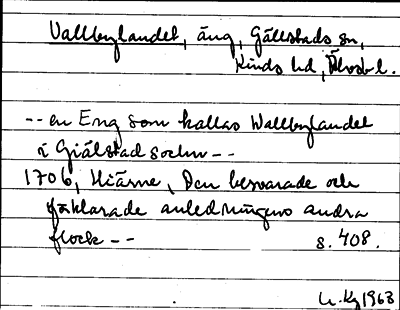 Vallbylandet, äng, Gällstads sn,
Kinds hd, Älvsb l.
-- en Eng som kallas Wallbylandet
i Giälstad sochn --
1706, Hiärne, Den beswarade och
förklarade anledningens andra
flock -- s. 408.
1963